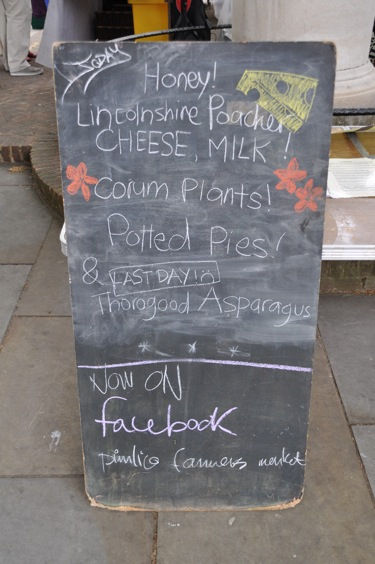 TODAY
Honey!
Lincolnshire Poacher
CHEESE, MILK!
Corum Plants!
Potted Pies!
& LAST DAY!
Thorogood Asparagus
* * *
NOW ON
facebook
pimlico farmers market